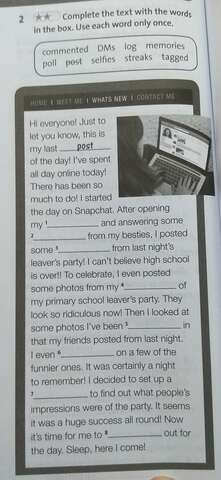 2 ★★ Complete the text with the words
in the box. Use each word only once.
commented DMs log memories
poll post selfies streaks tagged
HOME I MEET ME I WHATS NEW I CONTACT ME
Hi everyone! Just to
let you know, this is
my last post
of the day! I've spent
all day online today!
There has been so
much to do! I started
the day on Snapchat. After opening
my 1 and answering some
2 from my besties, I posted
some 3 from last night's
leaver's party! I can't believe high school
is over!! To celebrate, I even posted
some photos from my 4 of
my primary school leaver's party. They
look so ridiculous now! Then I looked at
some photos I've been 5 in
that my friends posted from last night.
I even 6 on a few of the
funnier ones. It was certainly a night
to remember! I decided to set up a
7 to find out what people's
impressions were of the party. It seems
it was a huge success all round! Now
it's time for me to 8 out for
the day. Sleep, here I come!